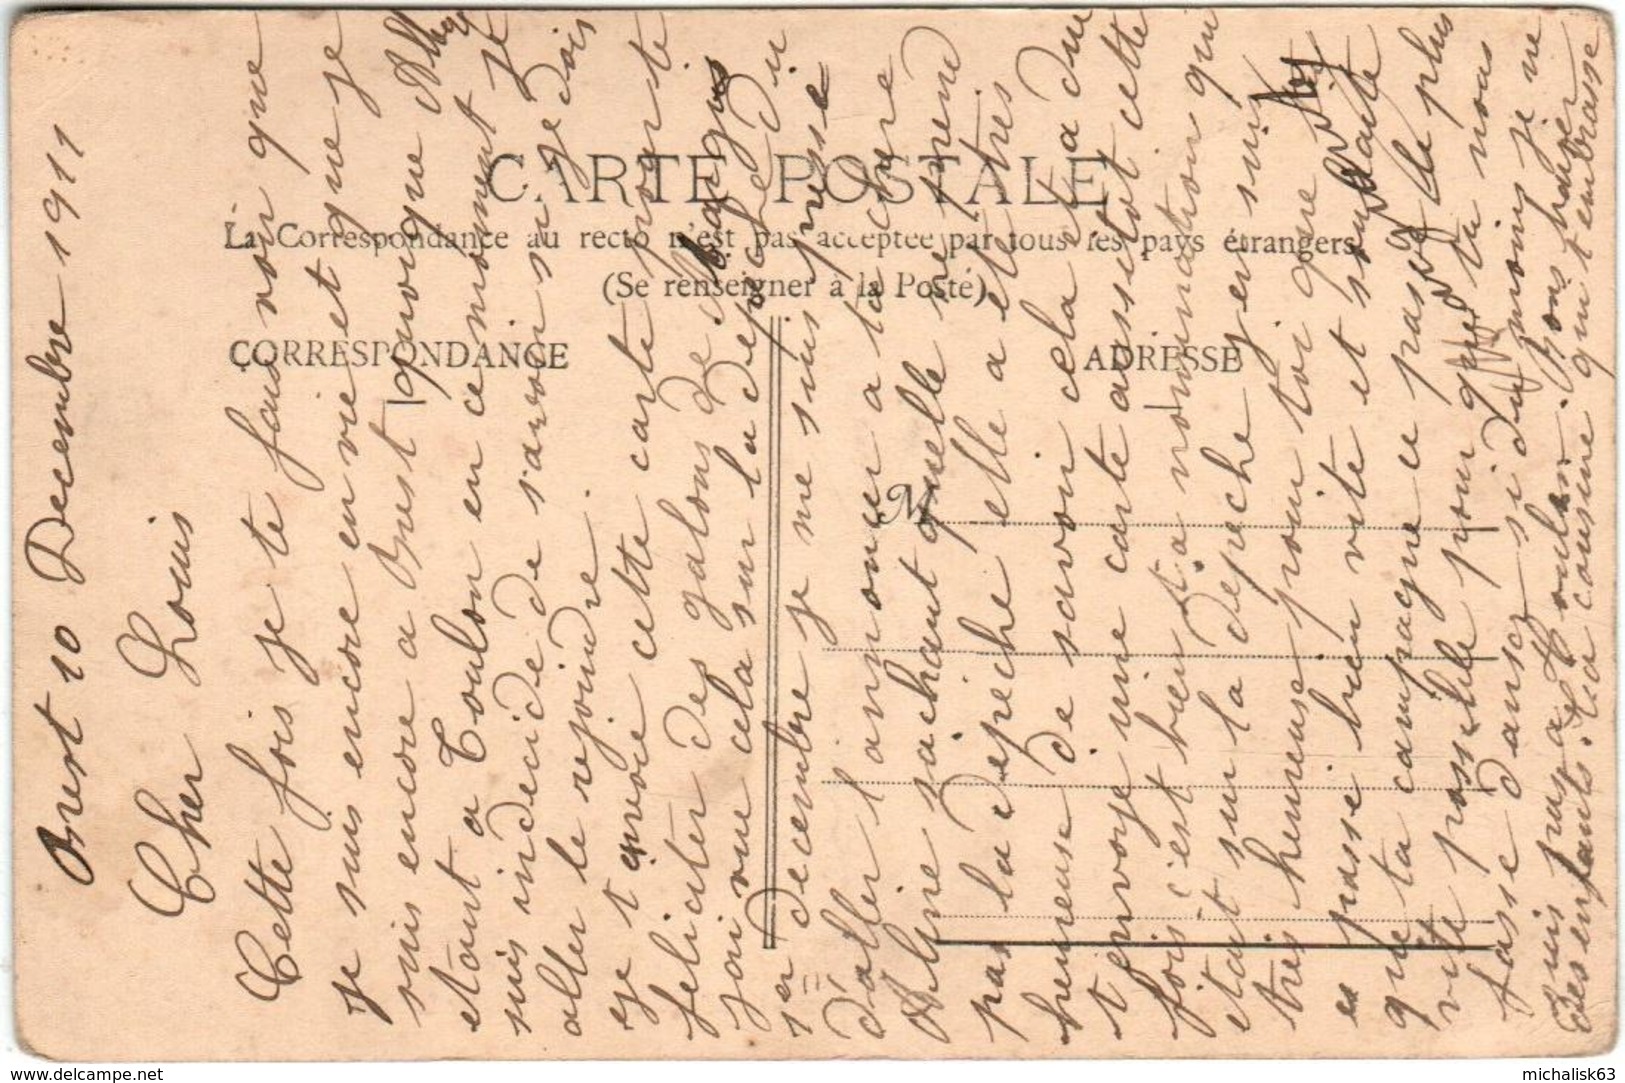 CARTE POSTALE
La Correspondance au recto n'est pas acceptée par tous les pays étrangers
(Se renseigner à la Poste)
CORRESPONDANCE
ADRESSE
M
Brest 10 Decembre 1911
Cher Louis
Cette fois je te fais voir que
je suis encore en vie et que je
suis encore a Brest quoique
etant a Toulon en ce moment je
suis indecide de savoir si je dois
aller le rejoindre.
je t envoie cette carte pour te
feliciter des galons de
j ai vue cela sur la depeche du
1er decembre je me suis presse
d aller l annoncer a ta chere
Aline sachant quelle ne prend
pas la depeche elle a ete tres
heureuse de savoir cela et a du
t envoye une carte aussitot cette
fois c'est bien ta nomination qui
etait sur la depeche j en suis
tres heureuse pour toi que
passe bien vite et souhaite
que ta campagne ce passe le plus
vite possible pour que tu nous
fasse danser si du moins je ne
suis pas a Toulon. Bons baiser
des enfants. Ta cousine qui t embrasse
www.delcampe.net
michalisk63